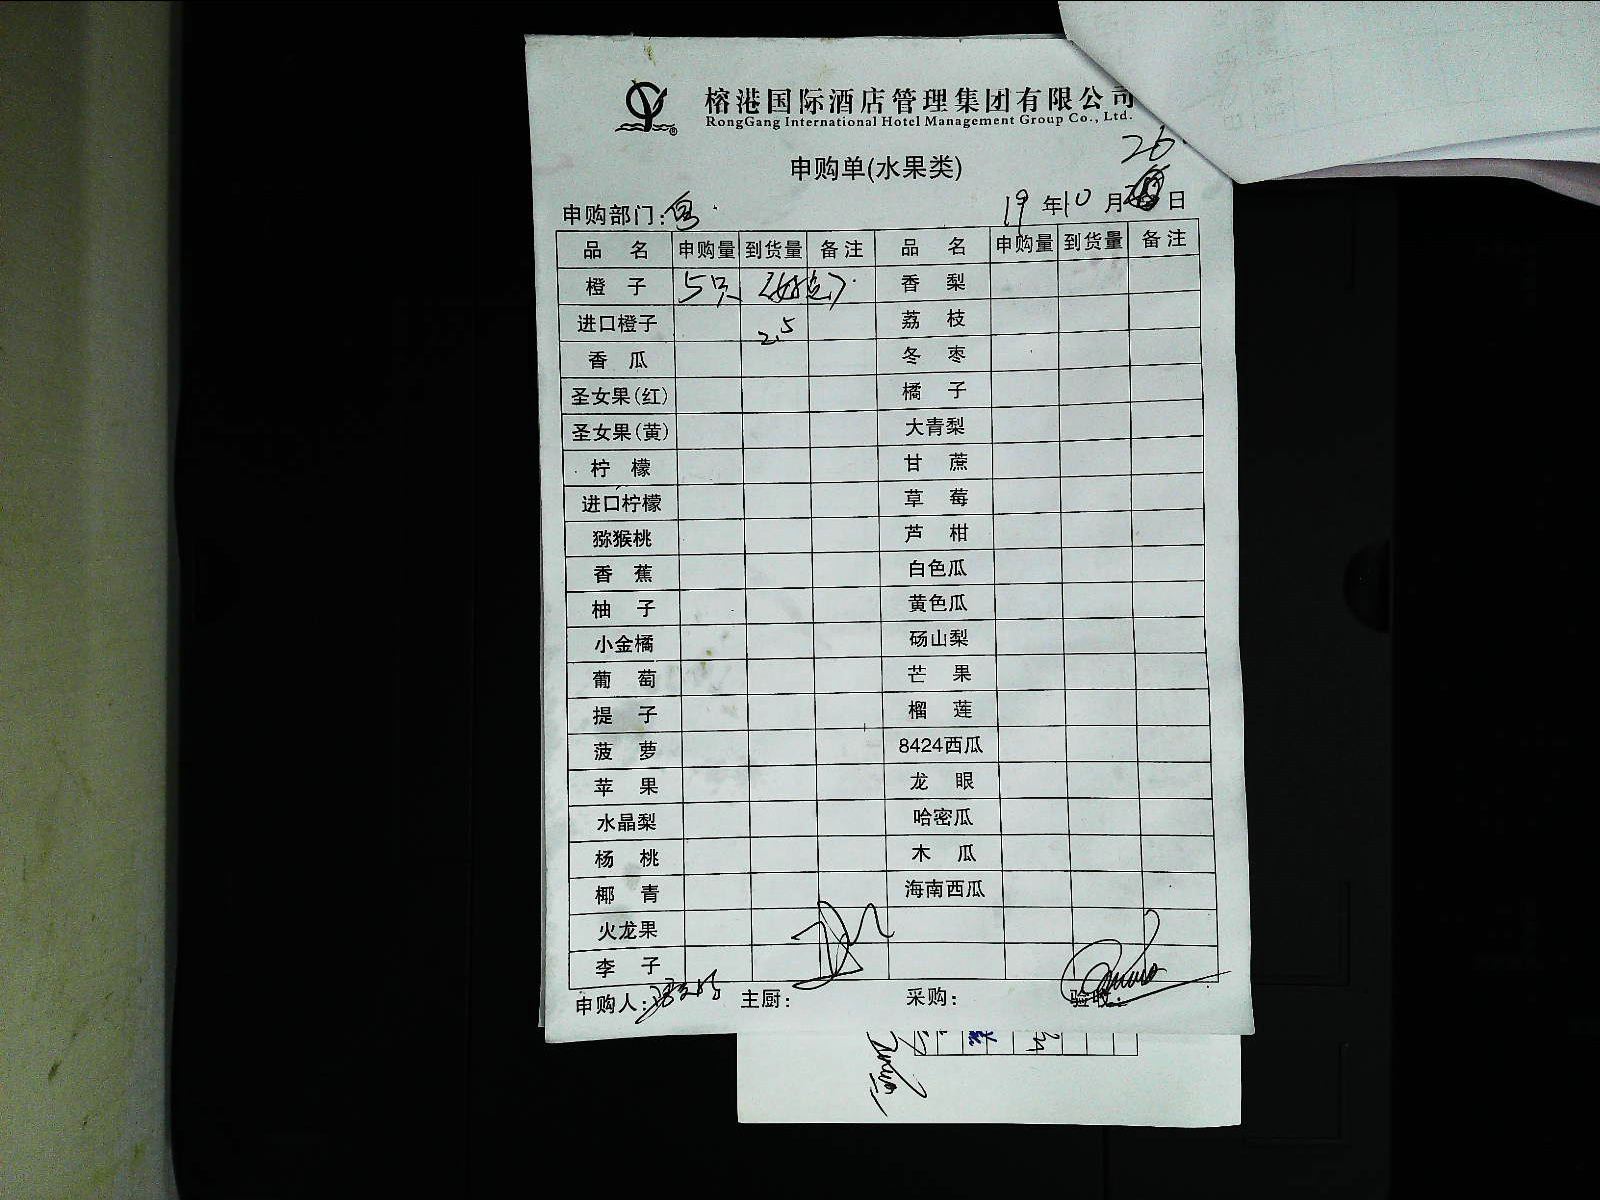 榕港国际酒店管理集团有限公司
RongGang International Hotel Management Group Co., Ltd.
26
申购单(水果类)
申购部门: 19年10月 日
品 名 申购量 到货量 备注 品 名 申购量 到货量 备注
橙 子 5只 (好点) 香 梨
进口橙子 2.5 荔 枝
香 瓜 冬 枣
圣女果(红) 橘 子
圣女果(黄) 大青梨
柠 檬 甘 蔗
进口柠檬 草 莓
猕猴桃 芦 柑
香 蕉 白色瓜
柚 子 黄色瓜
小金橘 砀山梨
葡 萄 芒 果
提 子 榴 莲
菠 萝 8424西瓜
苹 果 龙 眼
水晶梨 哈密瓜
杨 桃 木 瓜
椰 青 海南西瓜
火龙果
李 子
申购人: 主厨: 采购: 验收: